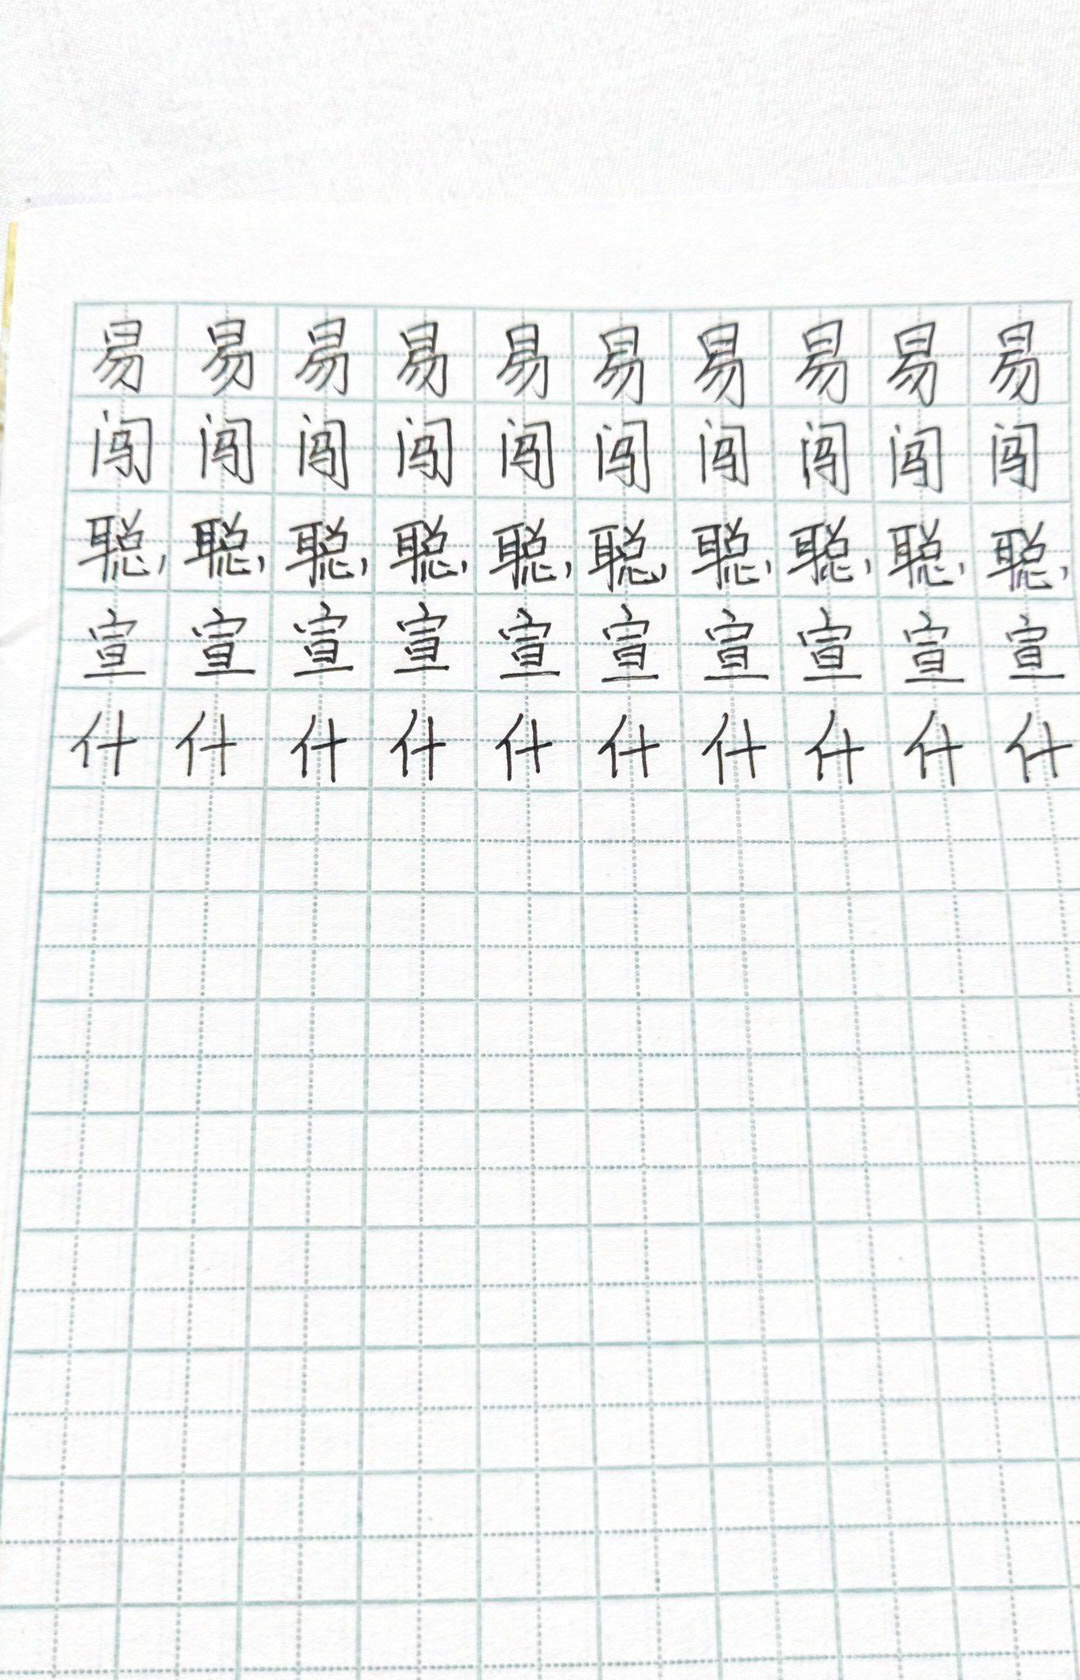 易易易易易易易易易易
闯闯闯闯闯闯闯闯闯闯
聪聪聪聪聪聪聪聪聪聪
宣宣宣宣宣宣宣宣宣宣
什什什什什什什什什什